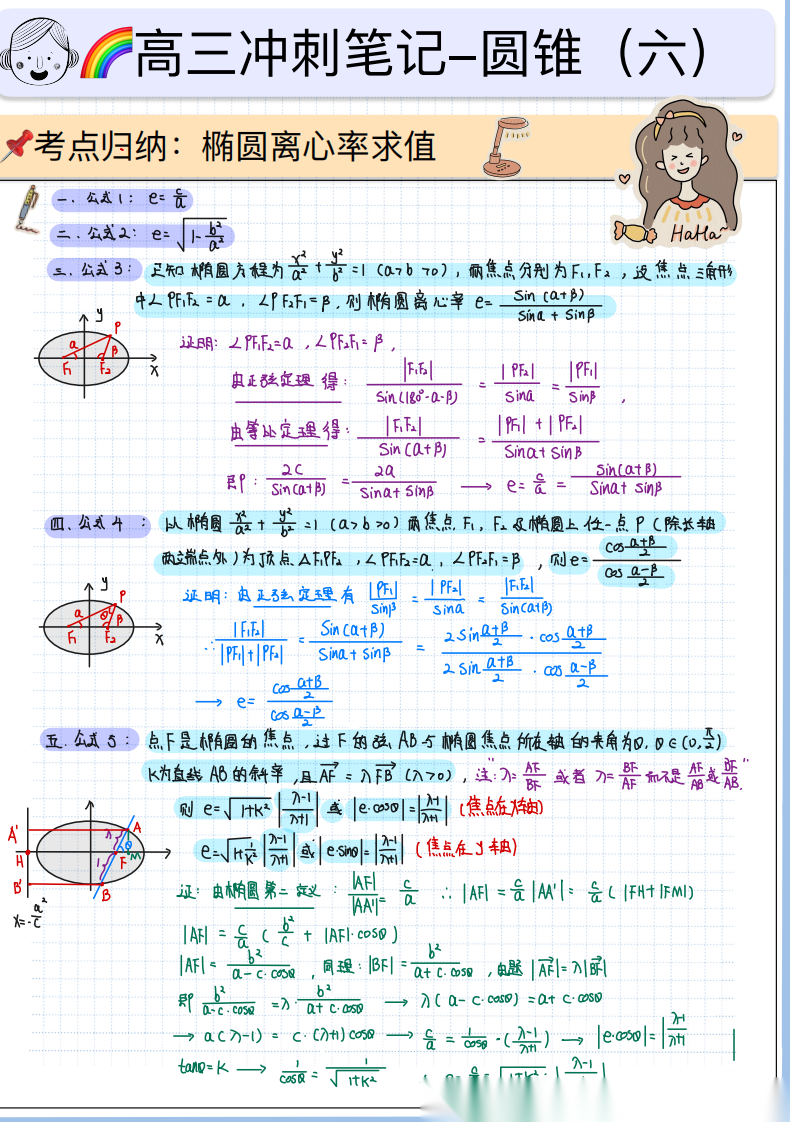 高三冲刺笔记-圆锥（六）
考点归纳：椭圆离心率求值
HaHa~
一、公式1： e=c/a
二、公式2： e=√(1-b²/a²)
三、公式3： 已知椭圆方程为 x²/a²+y²/b²=1（a>b>0），两焦点分别为F₁,F₂，设焦点三角形
中∠PF₁F₂=α，∠PF₂F₁=β，则椭圆离心率 e= sin(α+β)/(sinα+sinβ)
y P α β F₁ F₂ x
证明：∠PF₁F₂=α，∠PF₂F₁=β，
由正弦定理 得： |F₁F₂|/sin(180°-α-β) = |PF₂|/sinα = |PF₁|/sinβ ，
由等比定理得： |F₁F₂|/sin(α+β) = (|PF₁|+|PF₂|)/(sinα+sinβ)
即： 2c/sin(α+β) = 2a/(sinα+sinβ) → e=c/a= sin(α+β)/(sinα+sinβ)
四、公式4 ： 以椭圆 x²/a²+y²/b²=1（a>b>0）两焦点F₁，F₂及椭圆上任一点P（除长轴
两端点外）为顶点△F₁PF₂，∠PF₁F₂=α，∠PF₂F₁=β ，则e= cos((α+β)/2)/cos((α-β)/2)
y P α θ β F₁ F₂ x
证明：由正弦定理有 |PF₁|/sinβ = |PF₂|/sinα = |F₁F₂|/sin(α+β)
∴ |F₁F₂|/(|PF₁|+|PF₂|) = sin(α+β)/(sinα+sinβ) = (2sin((α+β)/2)·cos((α+β)/2))/(2sin((α+β)/2)·cos((α-β)/2))
→ e= cos((α+β)/2)/cos((α-β)/2)
五、公式5： 点F是椭圆的焦点，过F的弦AB与椭圆焦点所在轴的夹角为θ，θ∈(0,π/2)
K为直线AB的斜率，且AF=λFB（λ>0），注："λ=AF/BF 或者 λ=BF/AF 而不是 AF/AB或BF/AB"
则 e=√(1+K²)|(λ-1)/(λ+1)| 或 |e·cosθ|=|(λ-1)/(λ+1)|（焦点在x轴）
e=√(1+1/K²)|(λ-1)/(λ+1)|或|e·sinθ|=|(λ-1)/(λ+1)|（焦点在y轴）
A' A λ H 1 θ F M B' B x=-a²/c
证：由椭圆第二定义 ： |AF|/|AA'|=c/a ∴|AF|=c/a|AA'|=c/a(|FH+|FM|)
|AF|=c/a(b²/c+|AF|·cosθ)
|AF|=b²/(a-c·cosθ) ，同理：|BF|=b²/(a+c·cosθ)，由题|AF|=λ|BF|
即 b²/(a-c·cosθ) =λ·b²/(a+c·cosθ) → λ(a-c·cosθ)=a+c·cosθ
→ a(λ-1)= c·(λ+1)cosθ → c/a=1/cosθ·((λ-1)/(λ+1)) → |e·cosθ|=|(λ-1)/(λ+1)|
tanθ=K → 1/cosθ=1/√(1+K²)